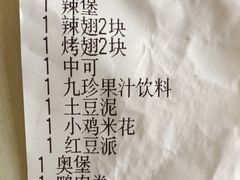 1 辣堡
1 辣翅2块
1 烤翅2块
1 中可
1 九珍果汁饮料
1 土豆泥
1 小鸡米花
1 红豆派
1 奥堡
1